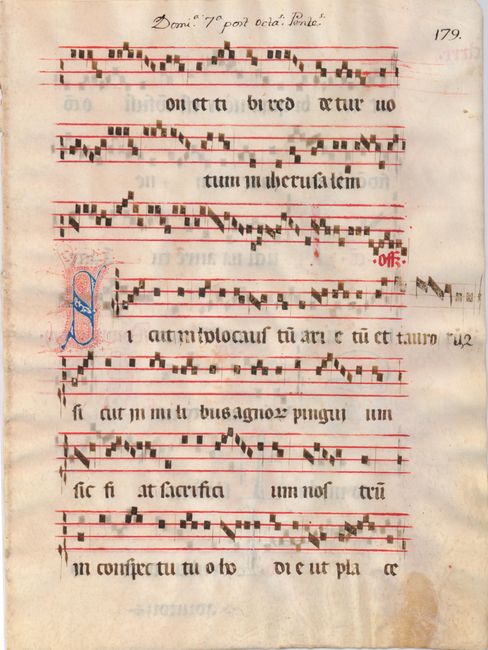 Domi.ª 7ª post octaˢ. Penteˢ.
179.
on et ti bi red de tur uo
tum in iherusalem
off.
S i cut in holocaus tū ari e tū et tauro ruꝫ
si cut in mi li bus agnoꝝ pingui um
sic fi at sacrifici um nos trū
in conspec tu tu o ho di e ut pla ce